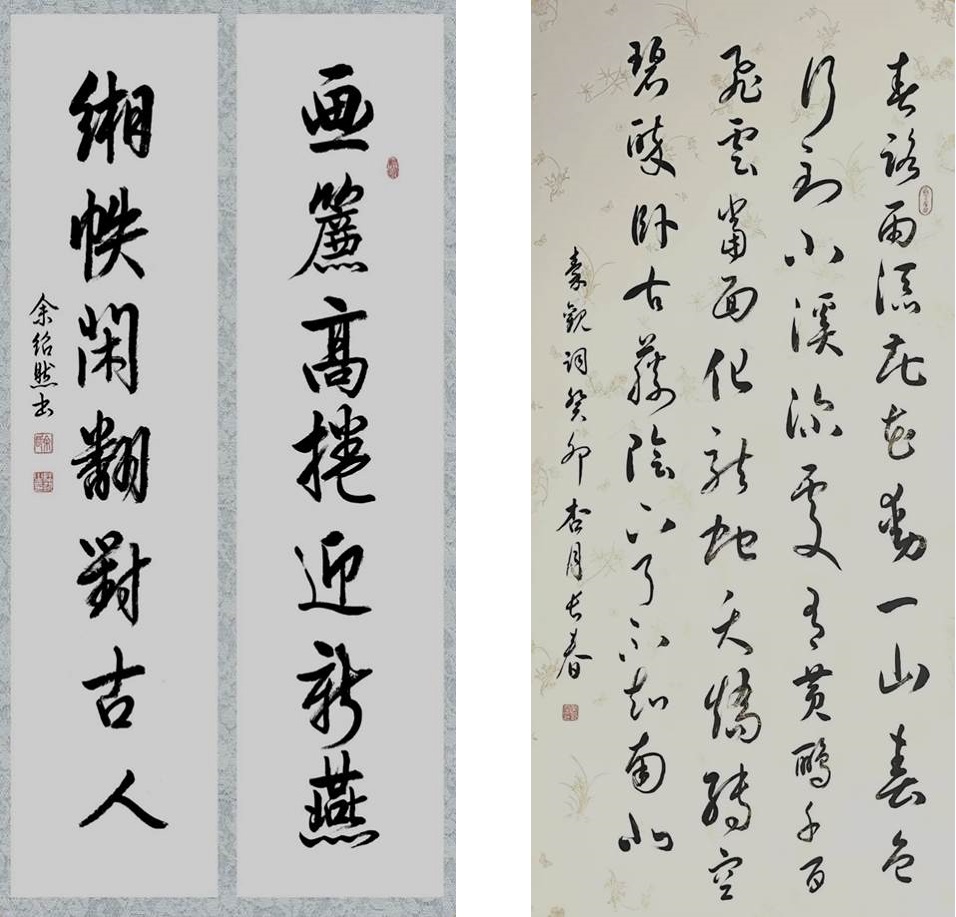 画簾高捲迎新燕
緗帙閑翻對古人
余紹然书
春路雨添花花動一山春色
行到小溪深處有黄鸝千百
飛雲當面化龍蛇夭矯轉空
碧醉卧古藤陰下了不知南北
秦觀詞癸卯杏月长春